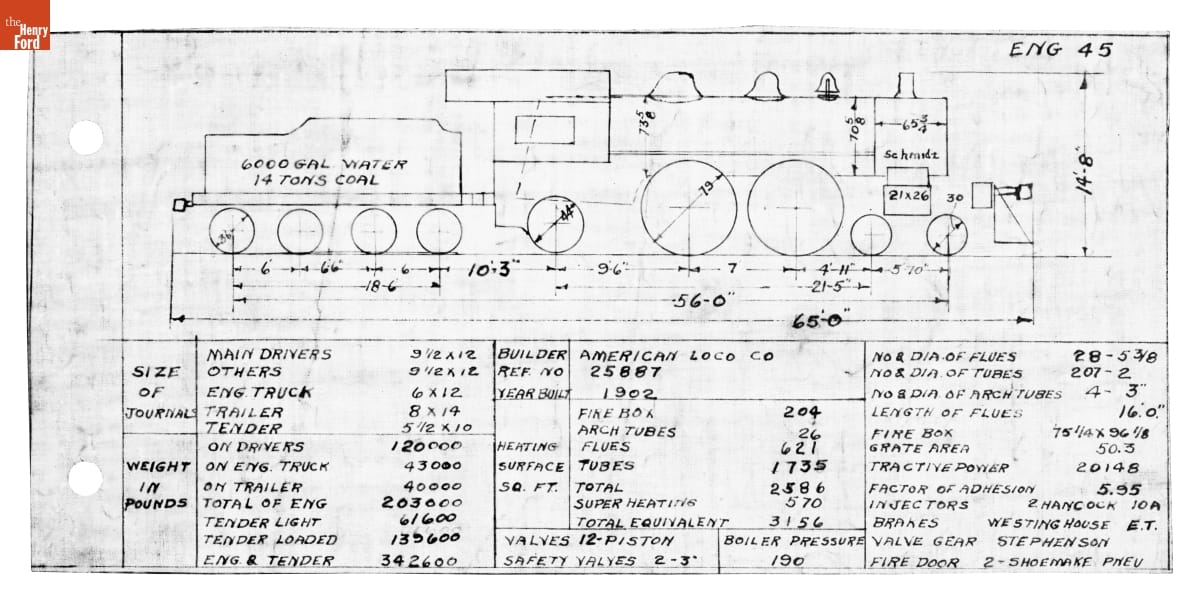 the
Henry
Ford
ENG 45
6000 GAL WATER
14 TONS COAL
73 5/8
70 5/8
65 3/4
Schmidt
14'-8"
79
21x26
30
44
36
6' 66" 6' 10'-3" 9'6" 7' 4'-11" 5'-10"
18-6" 21-5"
56-0"
65'-0"
SIZE OF JOURNALS
MAIN DRIVERS 9 1/2 X 12
OTHERS 9 1/2 X 12
ENG. TRUCK 6 X 12
TRAILER 8 X 14
TENDER 5 1/2 X 10
WEIGHT IN POUNDS
ON DRIVERS 120000
ON ENG. TRUCK 43000
ON TRAILER 40000
TOTAL OF ENG 203000
TENDER LIGHT 61600
TENDER LOADED 139600
ENG. & TENDER 342600
BUILDER AMERICAN LOCO CO
REF. NO 25887
YEAR BUILT 1902
HEATING SURFACE SQ. FT.
FIRE BOX 204
ARCH TUBES 26
FLUES 621
TUBES 1735
TOTAL 2586
SUPER HEATING 570
TOTAL EQUIVALENT 3156
VALVES 12-PISTON
SAFETY VALVES 2-3"
BOILER PRESSURE
190
NO & DIA. OF FLUES 28-5 3/8
NO & DIA. OF TUBES 207-2
NO & DIA. OF ARCH TUBES 4- 3"
LENGTH OF FLUES 16'.0"
FIRE BOX 75 1/4 X 96 1/8
GRATE AREA 50.3
TRACTIVE POWER 20148
FACTOR OF ADHESION 5.95
INJECTORS 2 HANCOCK 10A
BRAKES WESTINGHOUSE E.T.
VALVE GEAR STEPHENSON
FIRE DOOR 2-SHOEMAKE PNEU